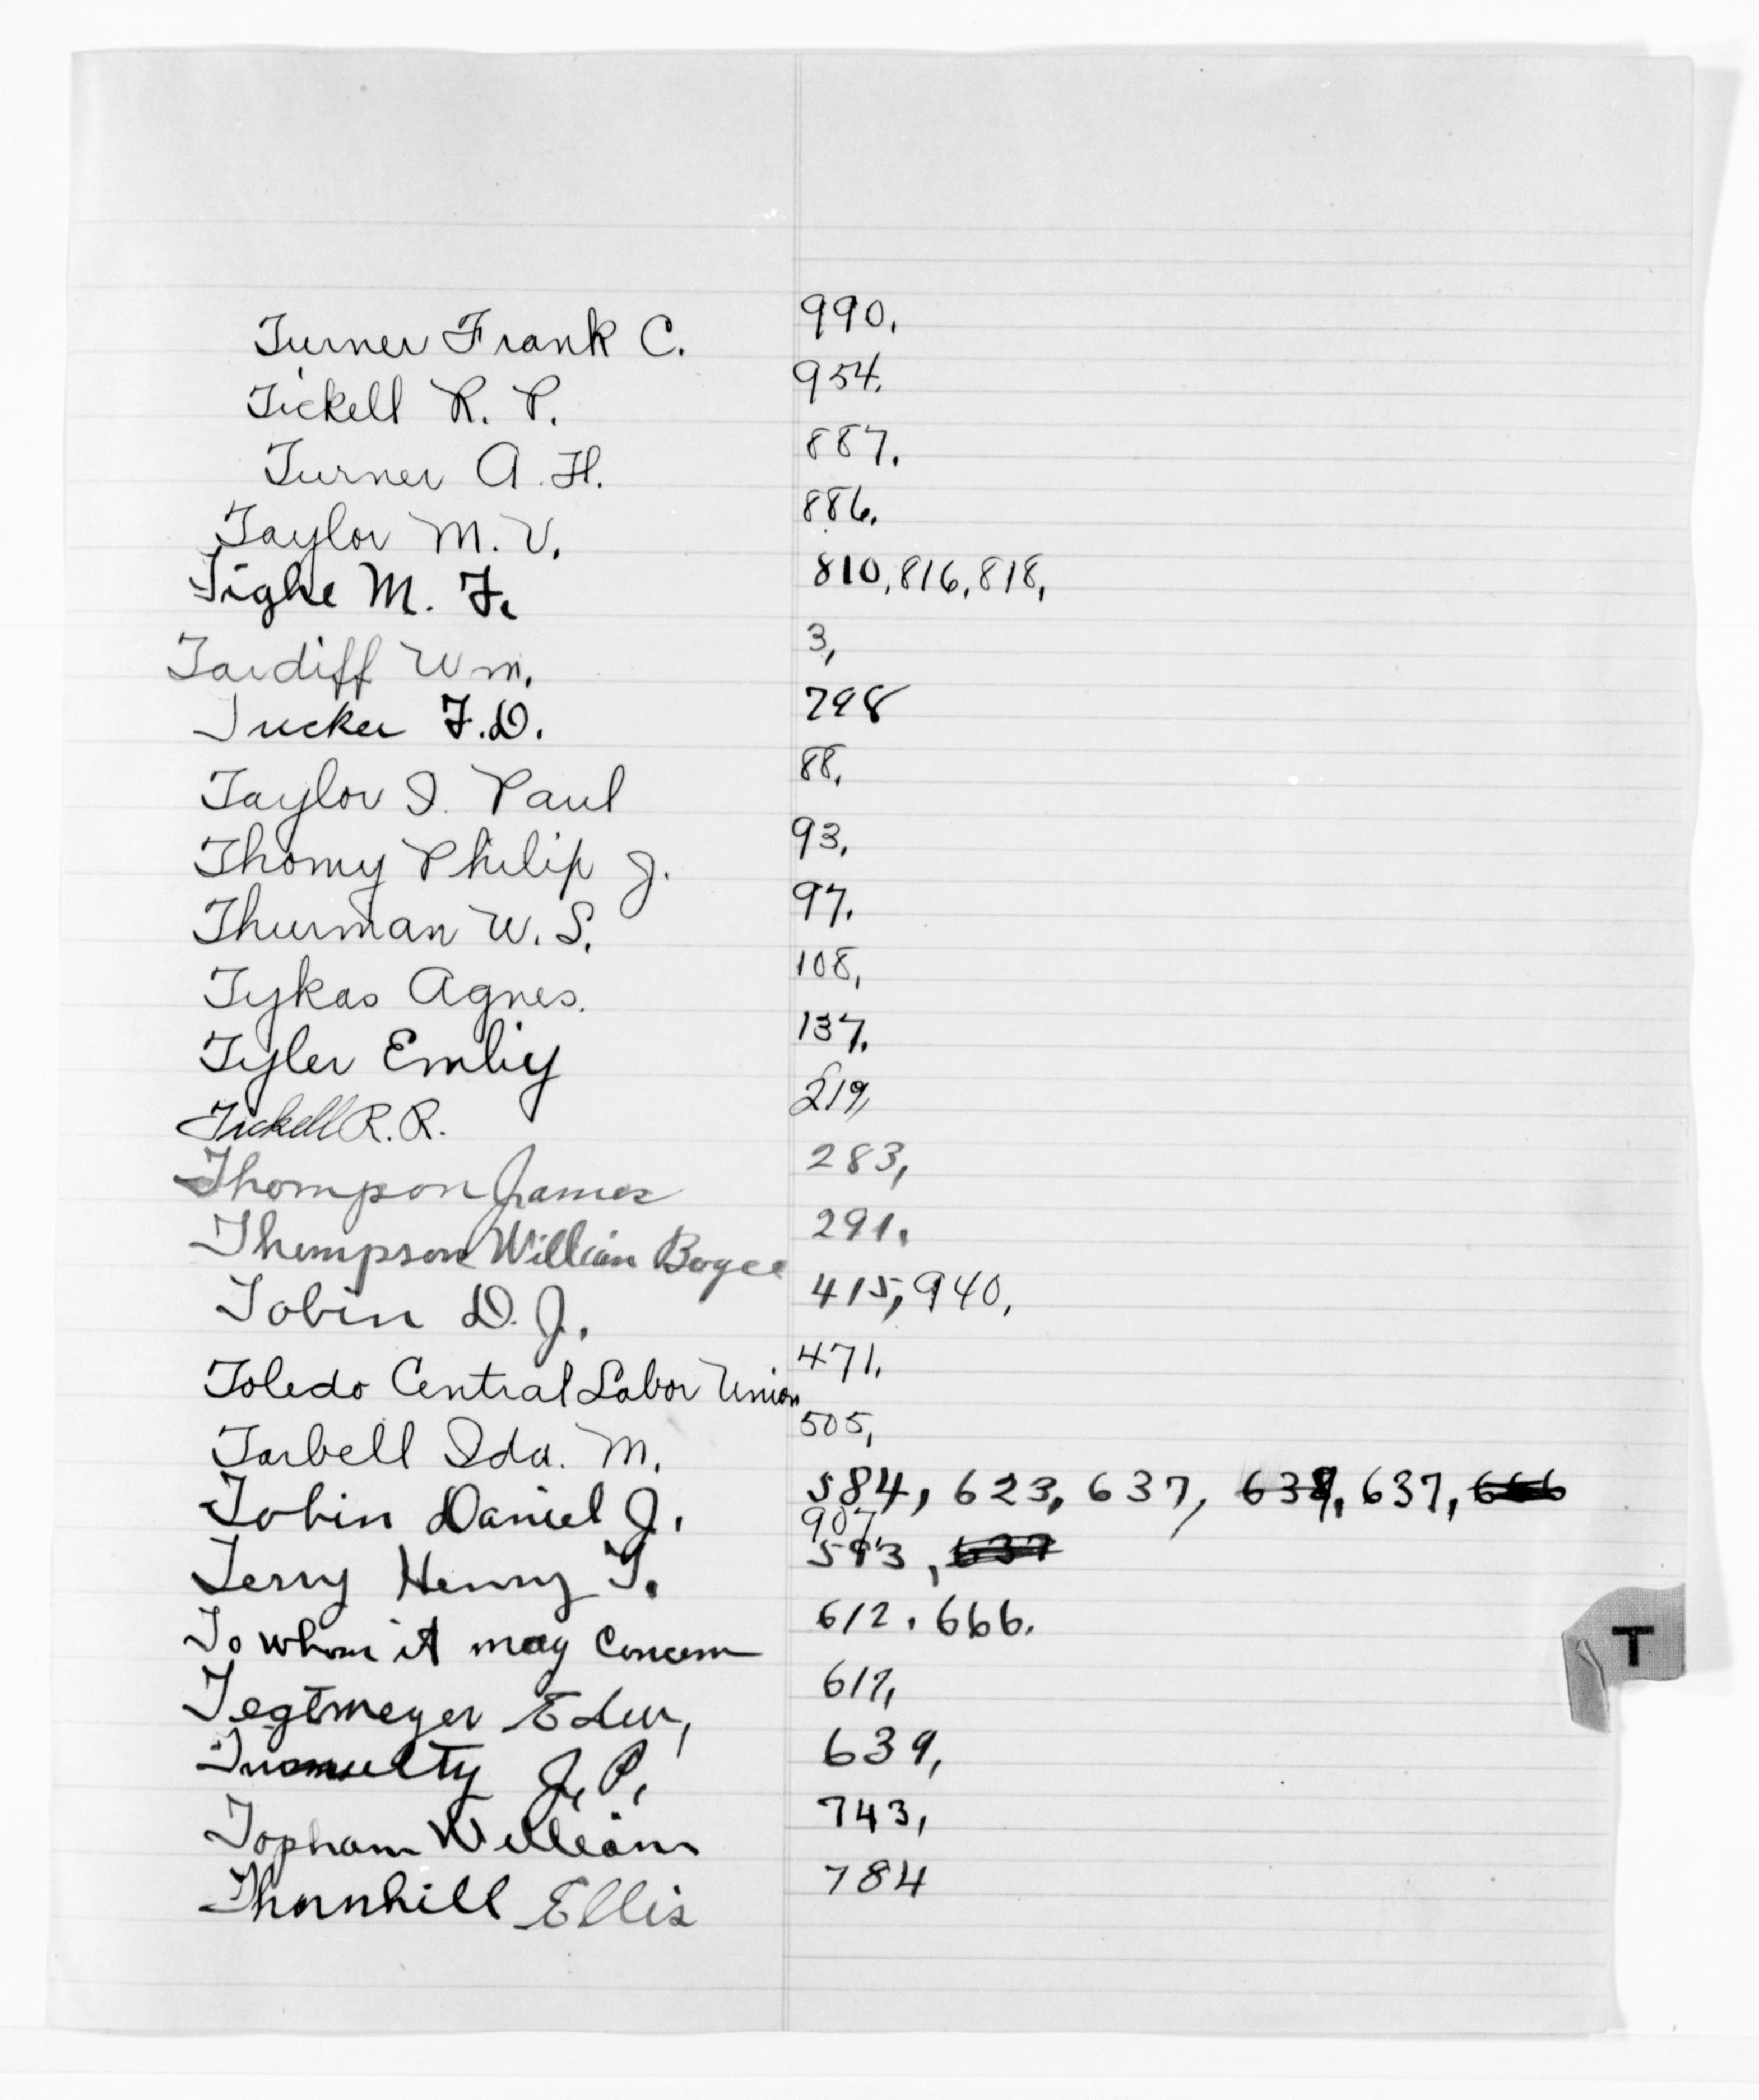 Turner Frank C. 990.
Tickell R. P. 954.
Turner A. H. 887.
Taylor M. V. 886.
Tighe M. F. 810, 816, 818,
Tardiff Wm. 3,
Tucker F. D. 798
Taylor I. Paul 88.
Thomy Philip J. 93,
Thurman W. S. 97.
Tykas Agnes. 108,
Tyler Emliy 137.
Tickell R. R. 219,
Thompson James 283,
Thompson William Boyce 291.
Tobin D. J. 415, 940,
Toledo Central Labor Union 471.
Tarbell Ida. M. 505,
Tobin Daniel J. 584, 623, 637, 637, 666
907.
Terry Henry T. 593, 637
To whom it may Concern 612. 666.
Tegtmeyer Edw, 617,
Tumulty J. P. 639,
Topham William 743,
Thornhill Ellis 784
T